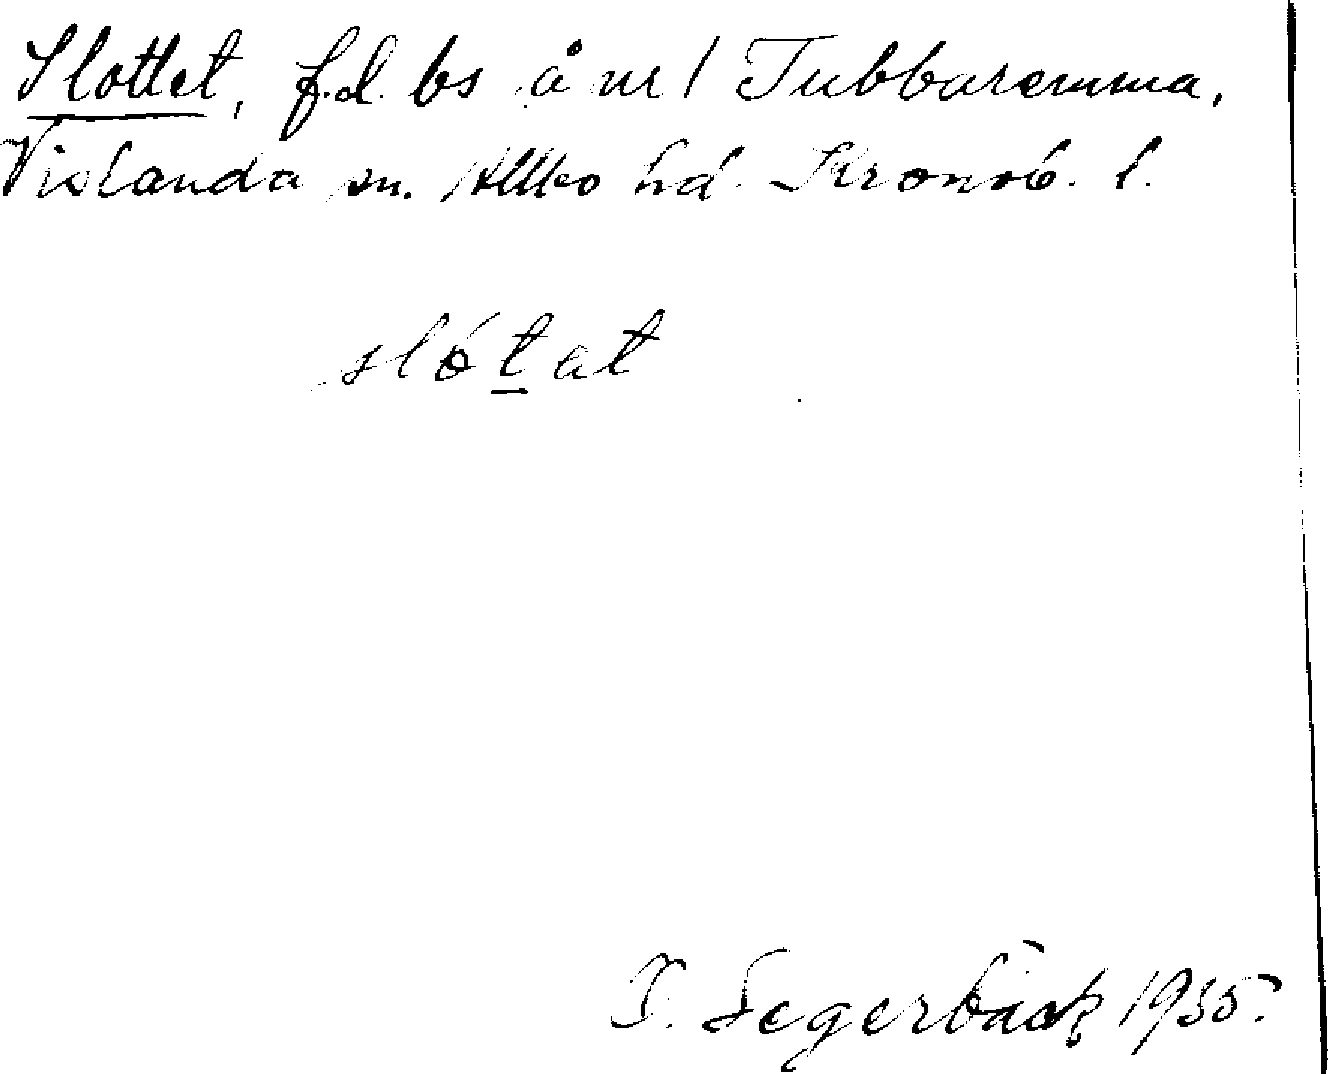 Slottet, f.d. bs å nr 1 Tubbaremma,
Vislanda sn. Allbo hd. Kronob. l.
slótat
Segerbäck 1935.